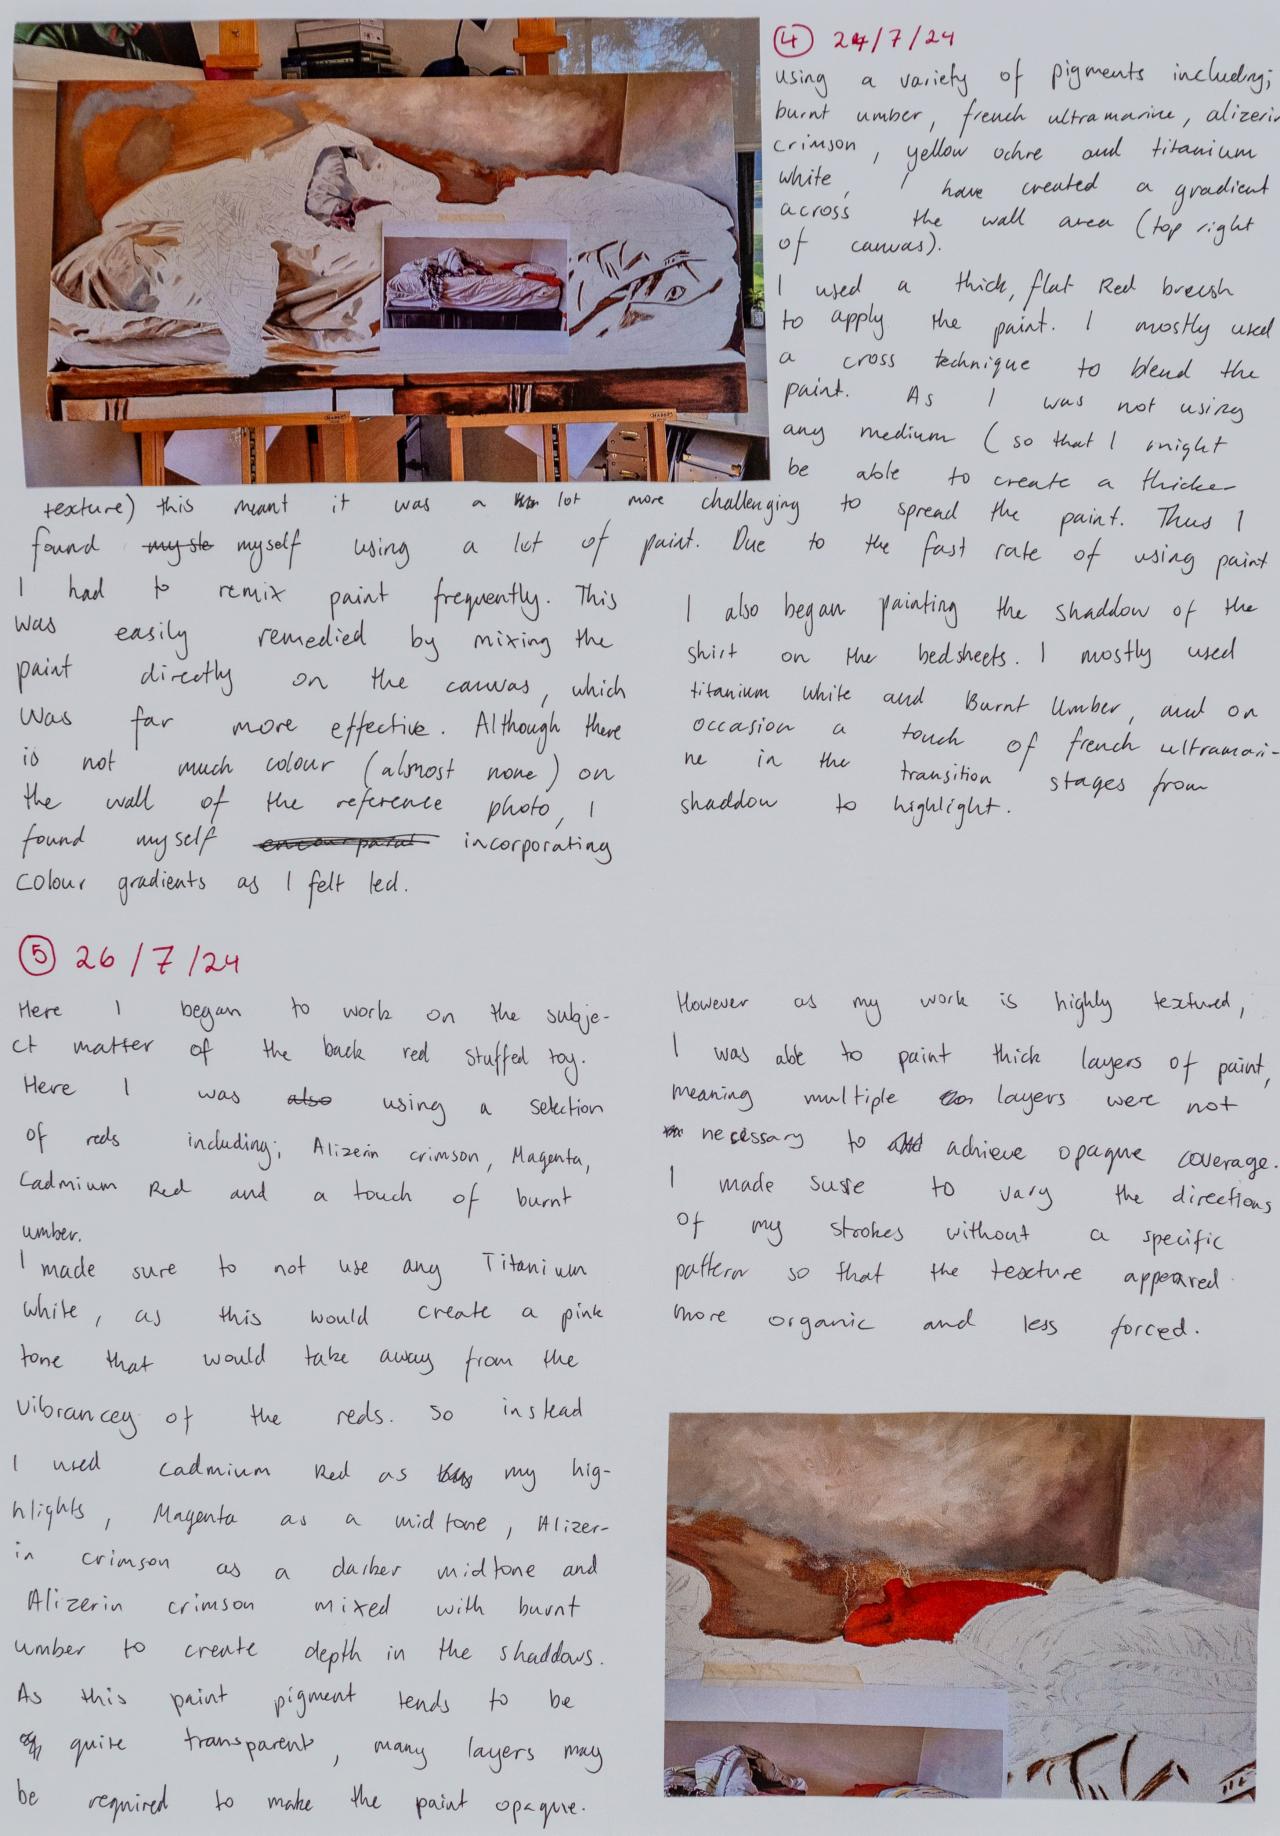 ④ 24/7/24
using a variety of pigments including;
burnt umber, french ultramarine, alizerin
crimson, yellow ochre and titanium
white, I have created a gradient
across the wall area (top right
of canvas).
I used a thick, flat Red brush
to apply the paint. I mostly used
a cross technique to blend the
paint. As I was not using
any medium (so that I might
be able to create a thicker
texture) this meant it was a lot more challenging to spread the paint. Thus I
found myself using a lot of paint. Due to the fast rate of using paint
I had to remix paint frequently. This
was easily remedied by mixing the
paint directly on the canvas, which
was far more effective. Although there
is not much colour (almost none) on
the wall of the reference photo, I
found myself incorporating
colour gradients as I felt led.
I also began painting the shaddow of the
shirt on the bedsheets. I mostly used
titanium white and Burnt Umber, and on
occasion a touch of french ultramari-
ne in the transition stages from
shaddow to highlight.
⑤ 26/7/24
Here I began to work on the subje-
ct matter of the back red stuffed toy.
Here I was also using a selection
of reds including; Alizerin crimson, Magenta,
Cadmium Red and a touch of burnt
umber.
I made sure to not use any Titanium
white, as this would create a pink
tone that would take away from the
vibrancey of the reds. So instead
I used Cadmium Red as my hig-
hlights, Magenta as a midtone, Alizer-
in crimson as a darker midtone and
Alizerin crimson mixed with burnt
umber to create depth in the shaddows.
As this paint pigment tends to be
quite transparent, many layers may
be required to make the paint opaque.
However as my work is highly textured,
I was able to paint thick layers of paint,
meaning multiple layers were not
necessary to achieve opaque coverage.
I made sure to vary the directions
of my strokes without a specific
pattern so that the texture appeared
more organic and less forced.